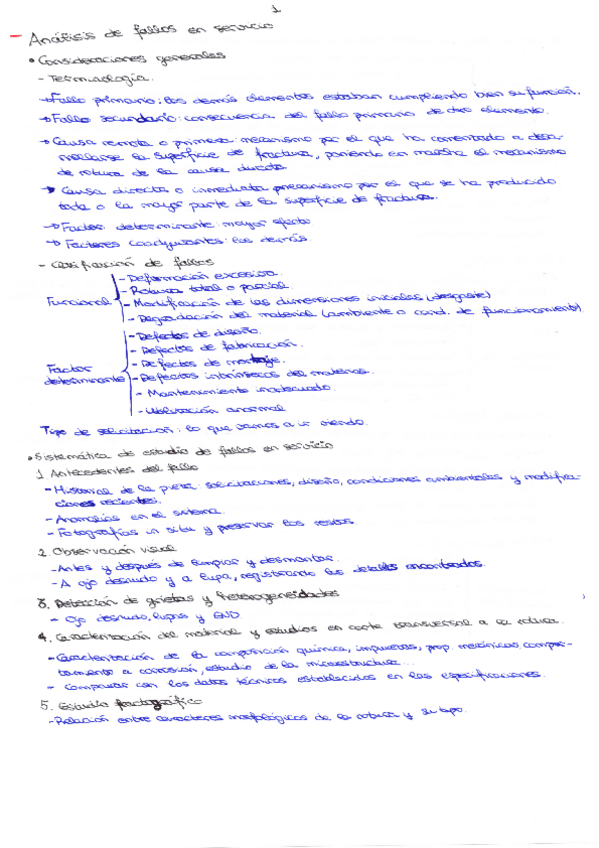 1
- Análisis de fallos en servicio
• Consideraciones generales
- Terminología.
→ Fallo primario: los demás elementos estaban cumpliendo bien su función.
→ Fallo secundario: consecuencia del fallo primario de otro elemento.
→ Causa remota o primera: mecanismo por el que ha comenzado a desa-
rrollarse la superficie de fractura, poniendo en marcha el mecanismo
de rotura de la causa directa
→ Causa directa o inmediata: mecanismo por el que se ha producido
toda o la mayor parte de la superficie de fractura.
→ Factor determinante: mayor efecto
→ Factores coadyuvantes: los demás
- Clasificación de fallos
Funcional
- Deformación excesiva
- Rotura total o parcial
- Modificación de las dimensiones iniciales (desgaste)
- Degradación del material (ambiente o cond. de funcionamiento)
Factor determinante
- Defectos de diseño.
- Defectos de fabricación.
- Defectos de montaje.
- Defectos intrínsecos del material.
- Mantenimiento inadecuado
- Utilización anormal
Tipo de solicitación: lo que vamos a ir viendo.
• Sistemática de estudio de fallos en servicio
1. Antecedentes del fallo
- Historial de la pieza: solicitaciones, diseño, condiciones ambientales y modifica-
ciones recientes.
- Anomalías en el sistema
- Fotografías in situ y preservar los restos
2. Observación visual
- Antes y después de limpiar y desmontar.
- A ojo desnudo y a lupa, registrando los detalles encontrados.
3. Detección de grietas y heterogeneidades
- Ojo desnudo, lupas y END
4. Caracterización del material y estudios en corte transversal a la rotura.
- Caracterización de la composición química, impurezas, prop. mecánicas, compor-
tamiento a corrosión, estudio de la microestructura...
- Comparar con los datos técnicos establecidos en las especificaciones.
5. Estudio fractográfico
- Relación entre caracteres morfológicos de la rotura y su tipo.